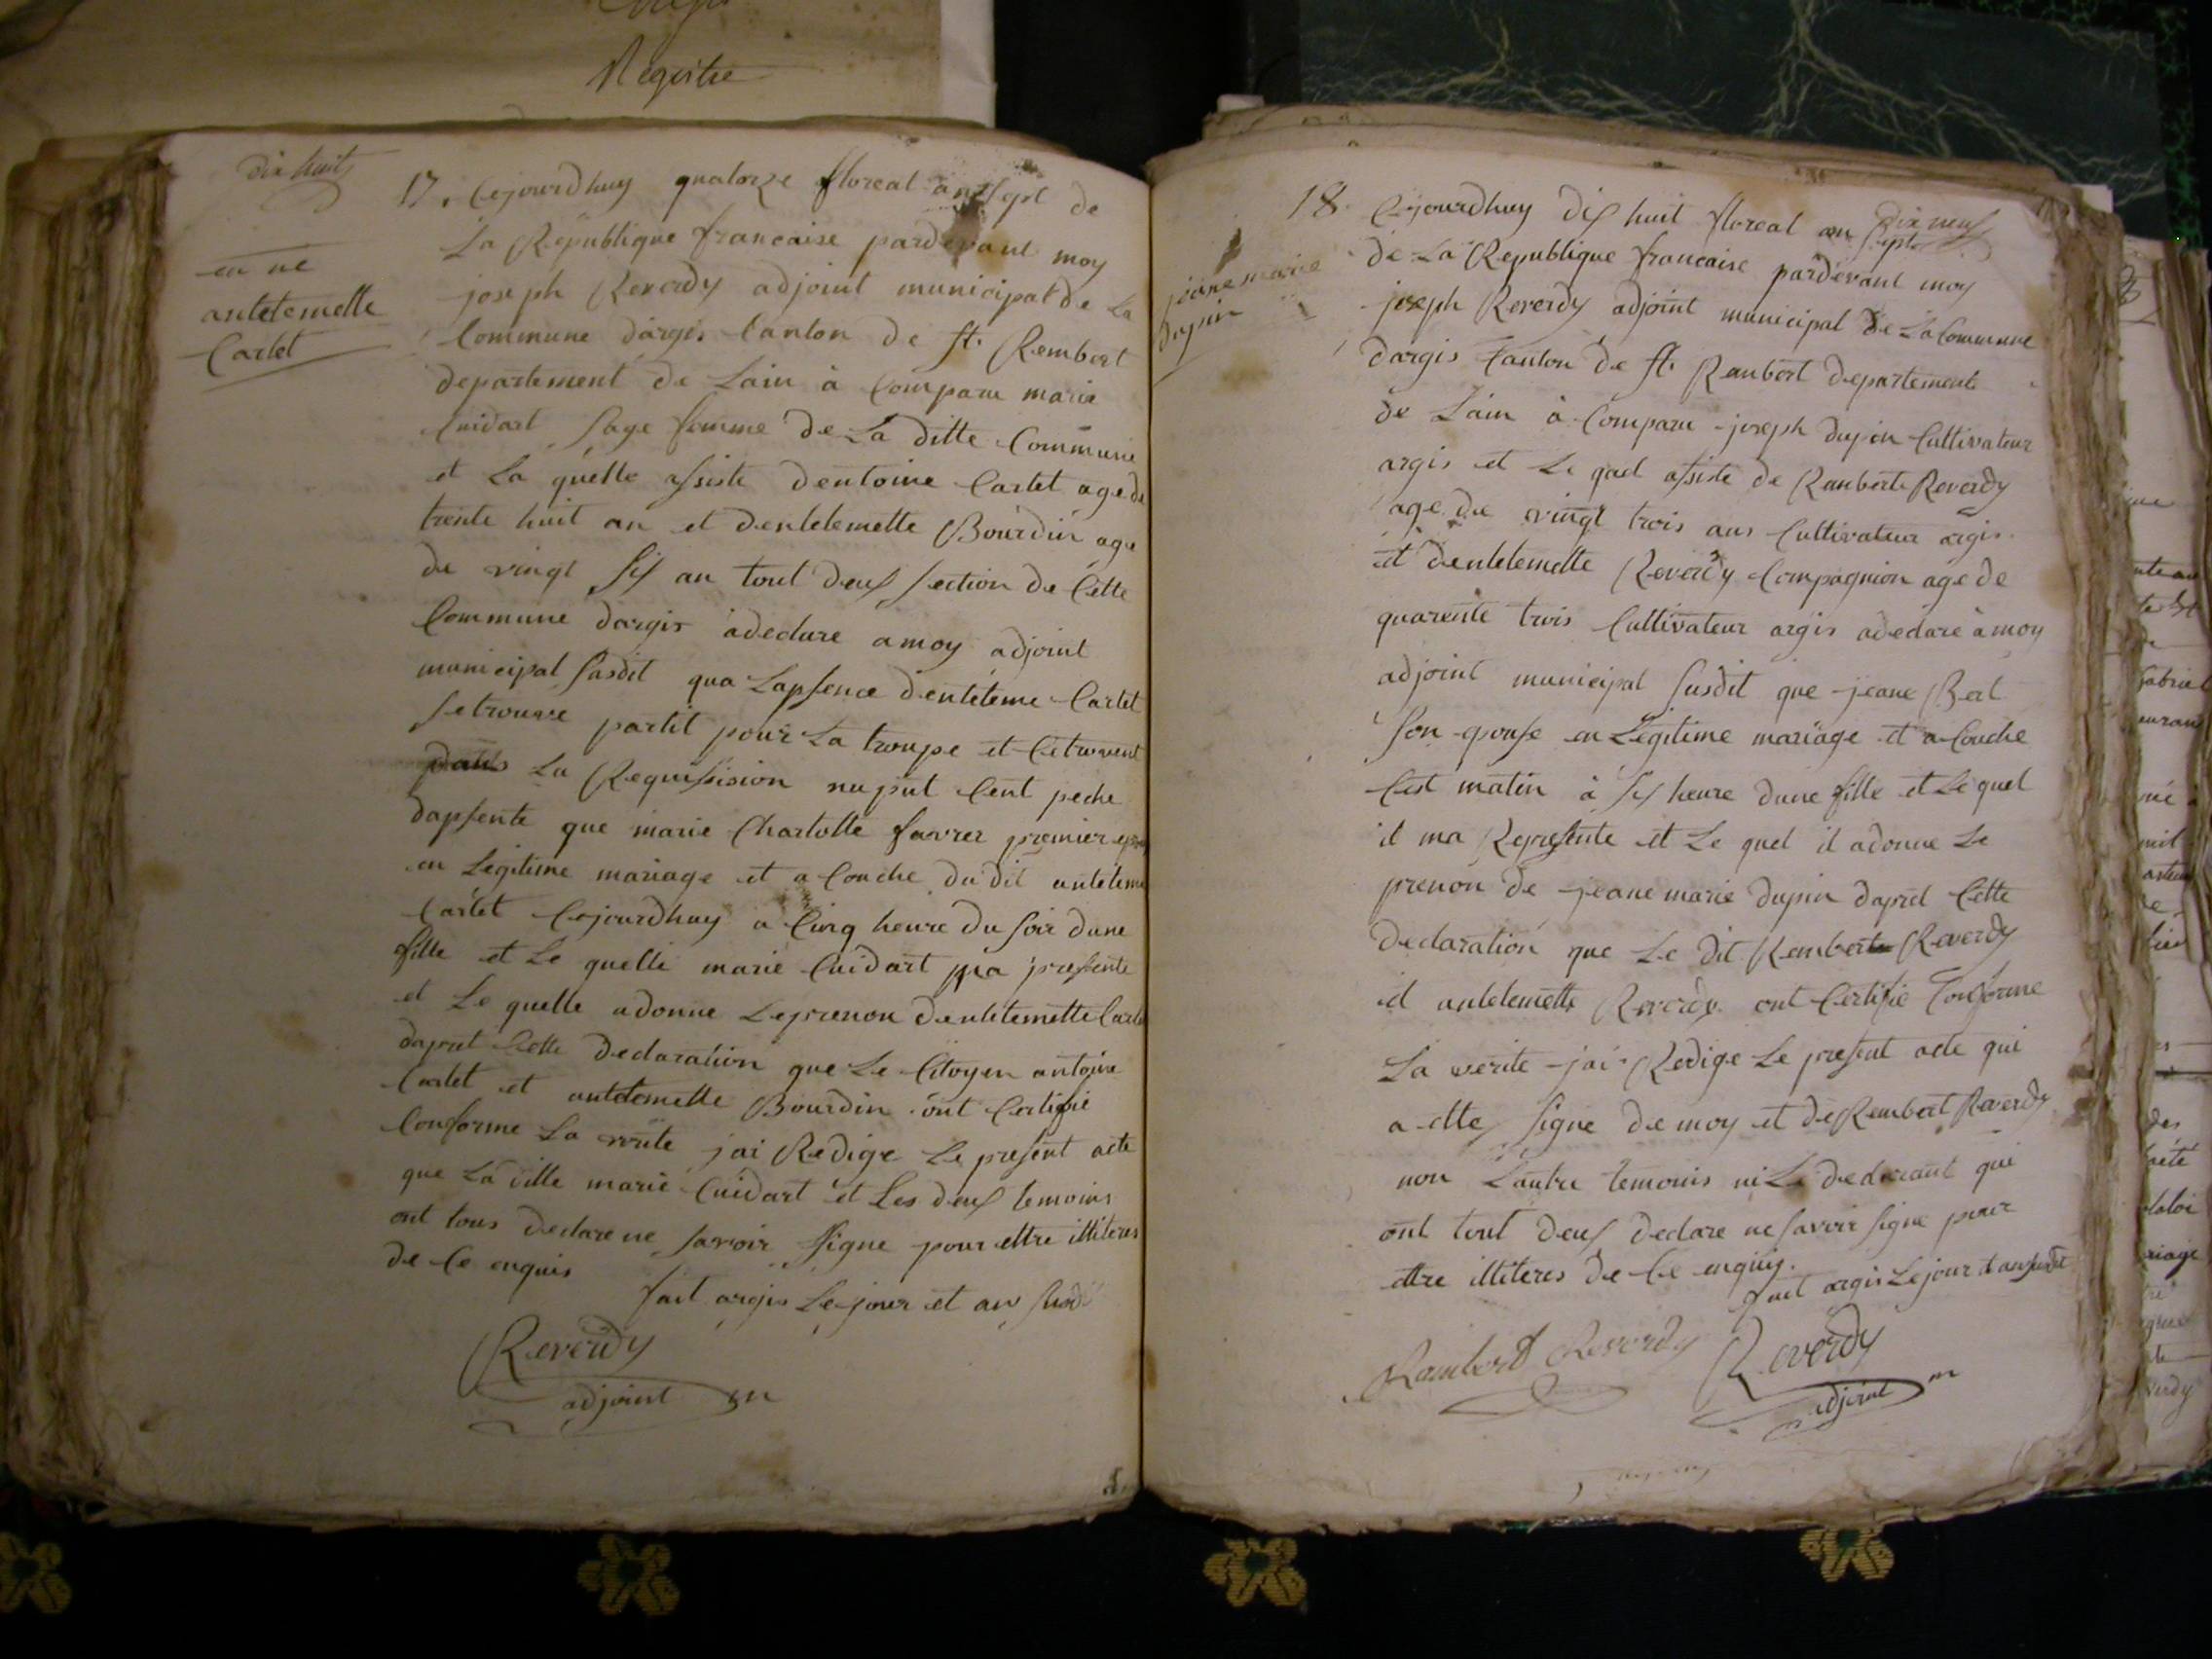 Registre
dix huit
en ne
antelemette
Cartet
17. Cejourdhuy quatorze floreal an sept de
La Republique francaise pardevant moy
joseph Reverdy adjoint municipal de La
Commune dargis Canton de St. Rembert
departement de Lain à Comparu marie
Cuidart sage femme de La ditte Commune
et La quelle assiste dentoine Cartet age de
trente huit an et dentelemette Bourdin age
de vingt six an tout deux section de Cette
Commune dargis adeclare amoy adjoint
municipal susdit qua Lapsence denteleme Cartet
se trouve partit pour La troupe et Cetrouvent
dans La Requisision
dapsente que marie Charlotte favrer premier
en Legitime mariage et a Couche du dit anteleme
Cartet Cejourdhuy a Cinq heure du soir dune
fille et Le quelle marie Cuidart ma presente
et Le quelle adonne Leprenon dentelemette Carte
dapret Cette declaration que Le Citoyen antoine
Cartet et antelemette Bourdin ont Certifie
Conforme La verite jai Redige Le present acte
que La ditte marie Cuidart et Les deux temoins
ont tous declare ne savoir signe pour ettre illiteres
de Ce enquis
fait argis Le jour et an susdi
Reverdy
adjoint m
dix neuf
jeane marie
dupin
18. Cejourdhuy dix huit floreal an sept
de La Republique francaise pardevant moy
joseph Reverdy adjoint municipal de La Commune
dargis Canton de St. Rambert departement
de Lain à Comparu joseph dupin Cultivateur
argis et Le quel assiste de Ranberte Reverdy
age de vingt trois ans Cultivateur argis
et dentelemette Reverdy Compagnion age de
quarente trois Cultivateur argis adeclare à moy
adjoint municipal susdit que jeane
son epouse en Legitime mariage et a Couche
Cest matin à six heure dune fille et Le quel
il ma Represente et Le quel il adonne Le
prenon de jeane marie dupin daprel Cette
declaration que Le dit Rembert Reverdy
et antelemette Reverdy ont Certifie Conforme
La verite jai Redige Le present acte qui
a ette signe de moy et de Rembert Reverdy
non Lautre temonis ni Le declarant qui
ont tout deux declare ne savoir signe pour
ettre illiteres de Ce enquis.
fait argis Le jour et an susdit
Rambert Reverdy
Reverdy
adjoint m